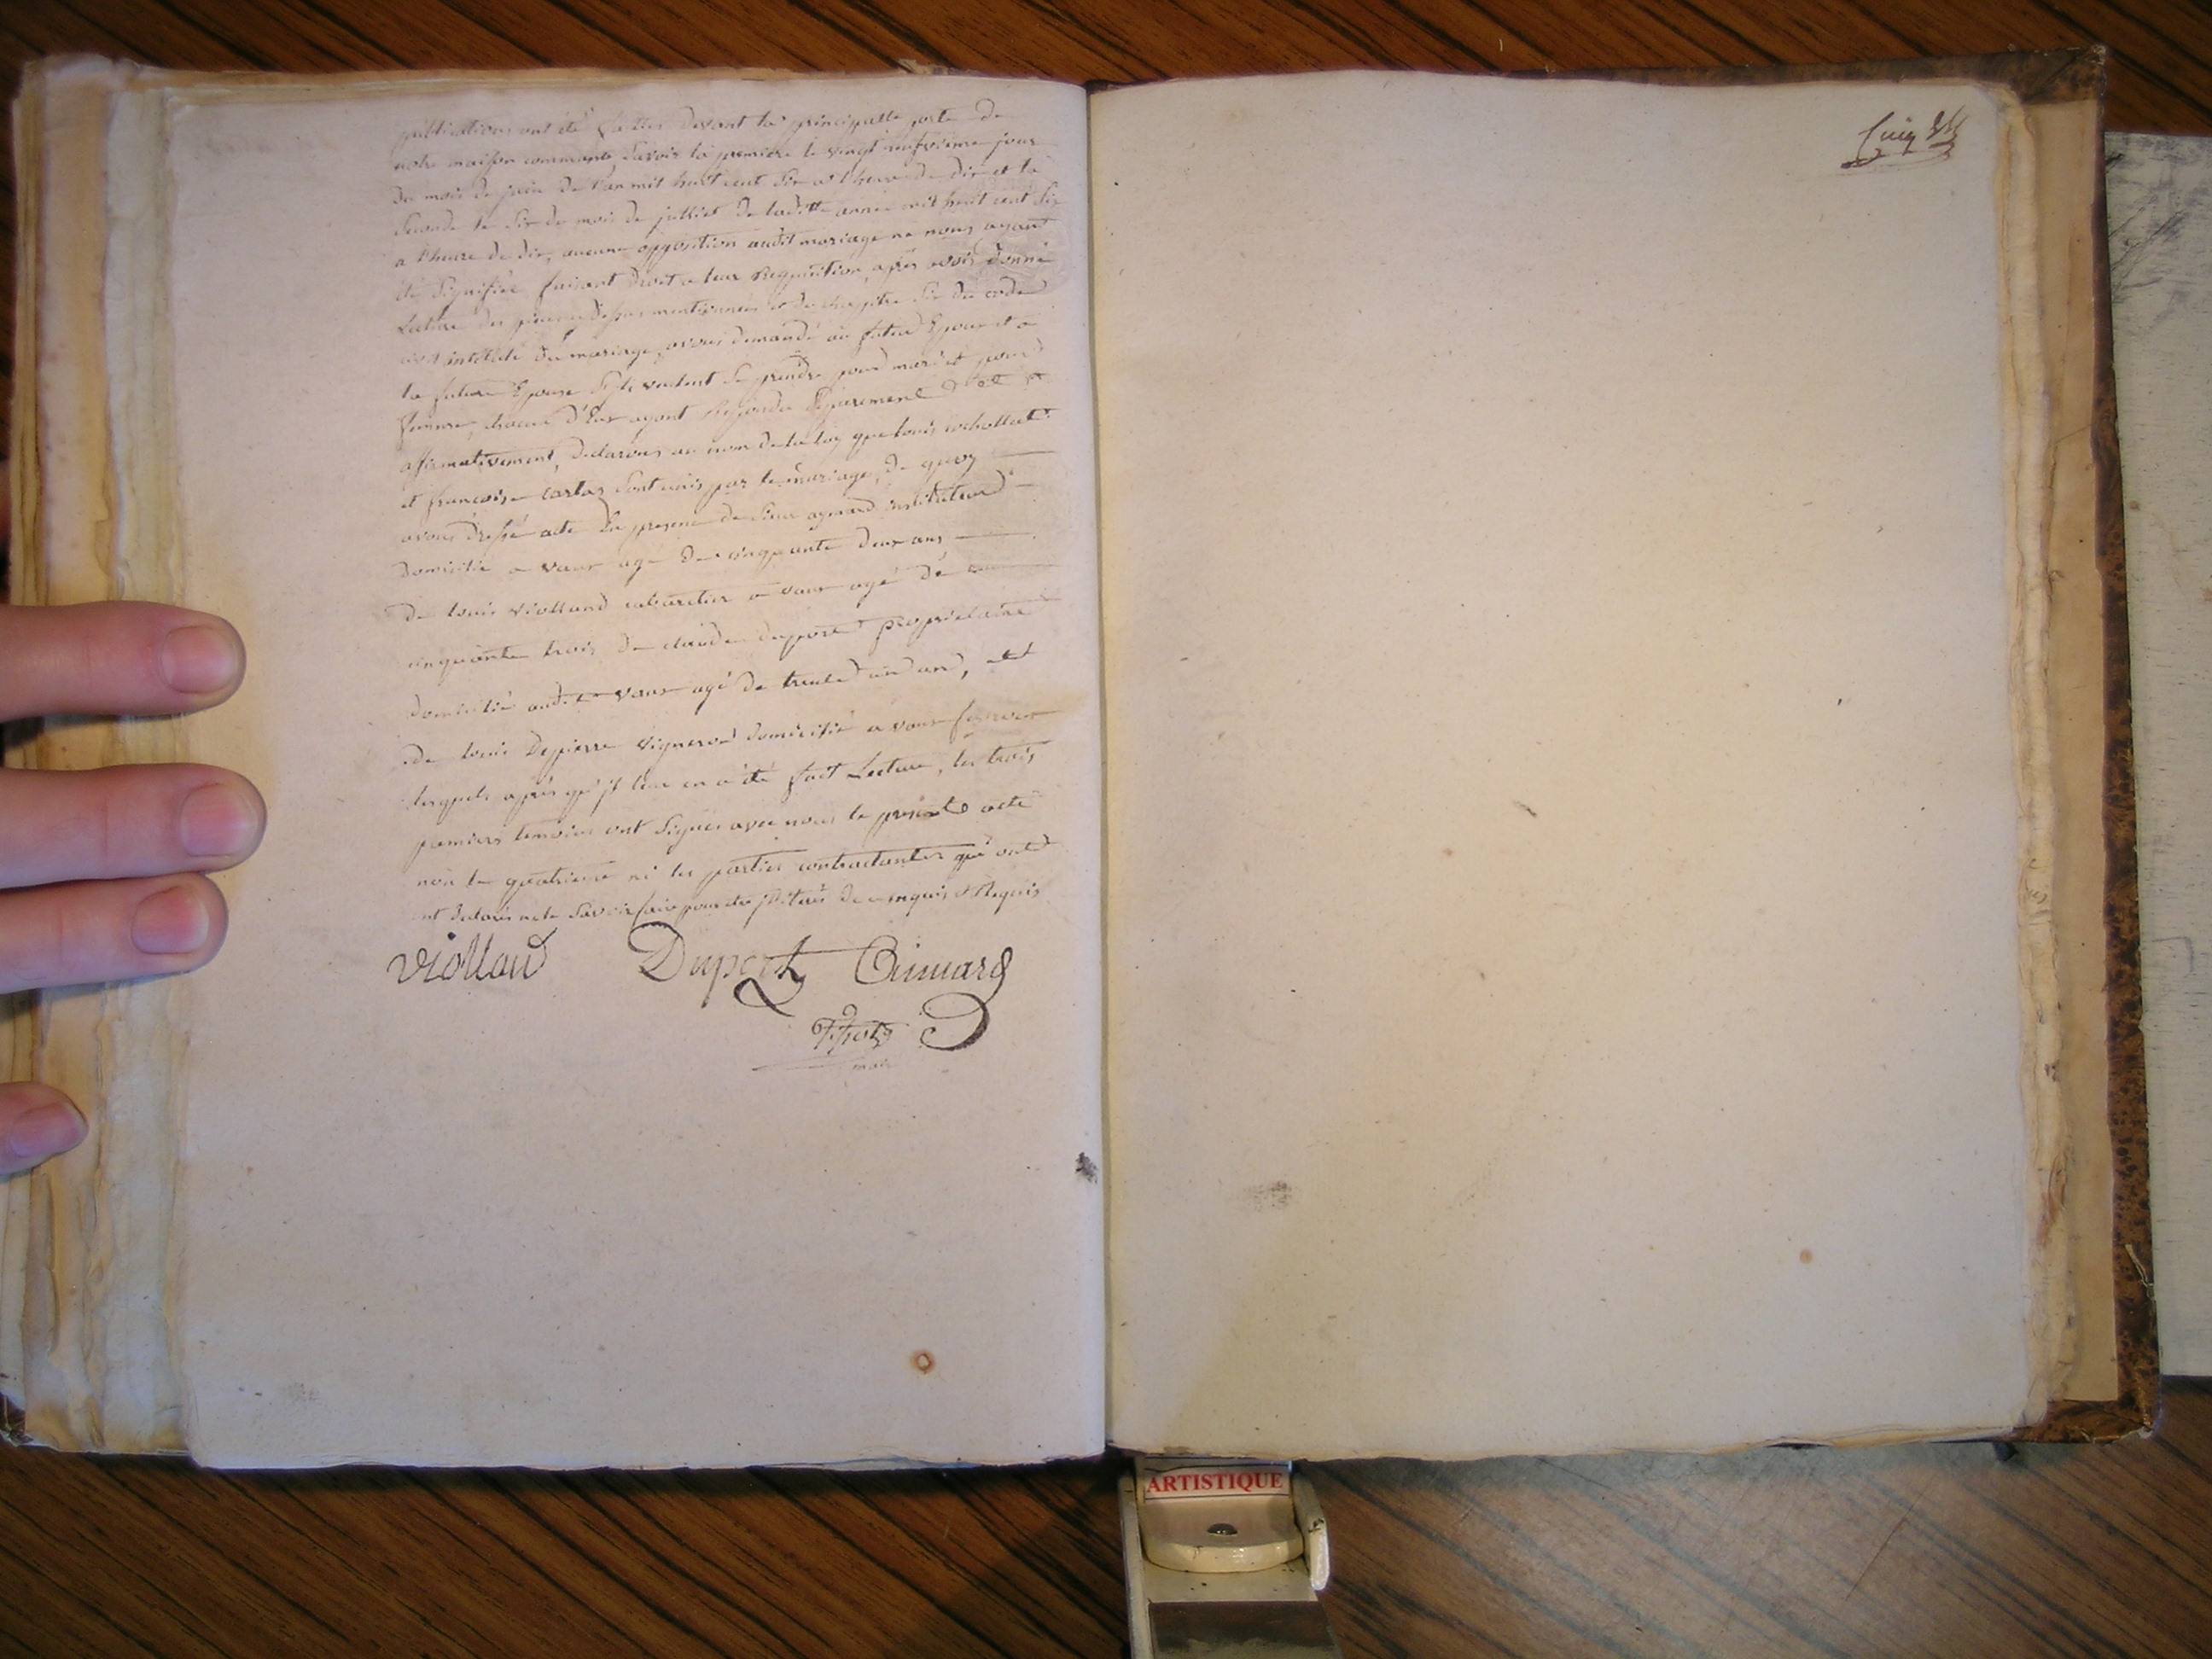 publications ont été faittes devant la principalle porte de
notre maison commune, savoir la premiere le vingt neufvieme jour
du mois de juin de l'an mil huit cent six a l'heure de dix et la
seconde le six du mois de julliet de laditte année mil huit cent six
a l'heure de dix, aucune opposition audit mariage ne nous ayant
été signifiée faisant droit a leur requisition, après avoir donné
lecture des pieces dessus mentionnées et du chapitre six du code
civil intitulé du mariage, avons demandé au futur Epoux et a
la future Epouse s'ils veulent se prendre pour mari et pour
femme, chacun d'Eux ayant repondu separement et
affirmativement, declarons au nom de la loy que louis
et francoise sont unis par le mariage, de quoy
avons dressé acte en presence de sieur aymard instituteur
domicilié a vaux agé de cinquante deux ans
de louis viollaud cabaretier a vaux agé de
cinquante trois de claude duport propriétaire
domicilié audit vaux agé de trente un an, et
de louis Depierre vigneron domicilié a vaux
lesquels après qu'il leur en a été fait Lecture, les trois
premiers temoins ont signés avec nous le present acte
non le quatrieme ni les parties contractantes qui ont
ont declarés ne le savoir faire pour être illiterés de ce enquis et Requis
viollaud Duport Aimard
maire